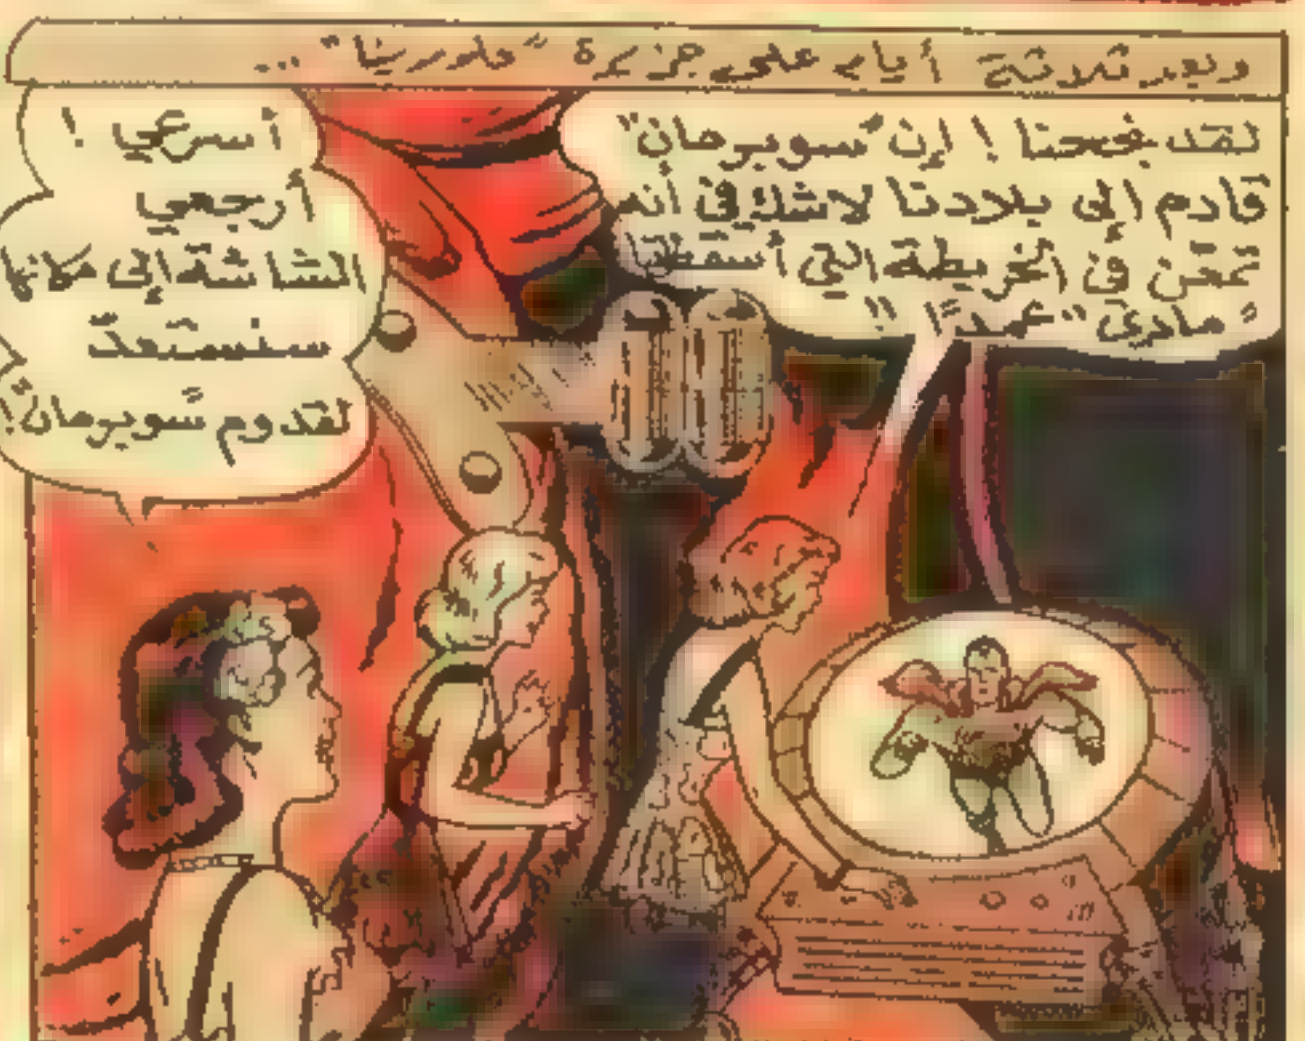 وبعد ثلاثة أيام على جزيرة "فلورينا" ...
لقد نجحنا ! إن "سوبرمان"
قادم إلى بلادنا لاشك في أنه
تمعّن في الخريطة التي أسقطتها
"ماري" عمدًا !!
أسرعي !
أرجعي
الشاشة إلى مكانها
سنستعدّ
لقدوم "سوبرمان" !